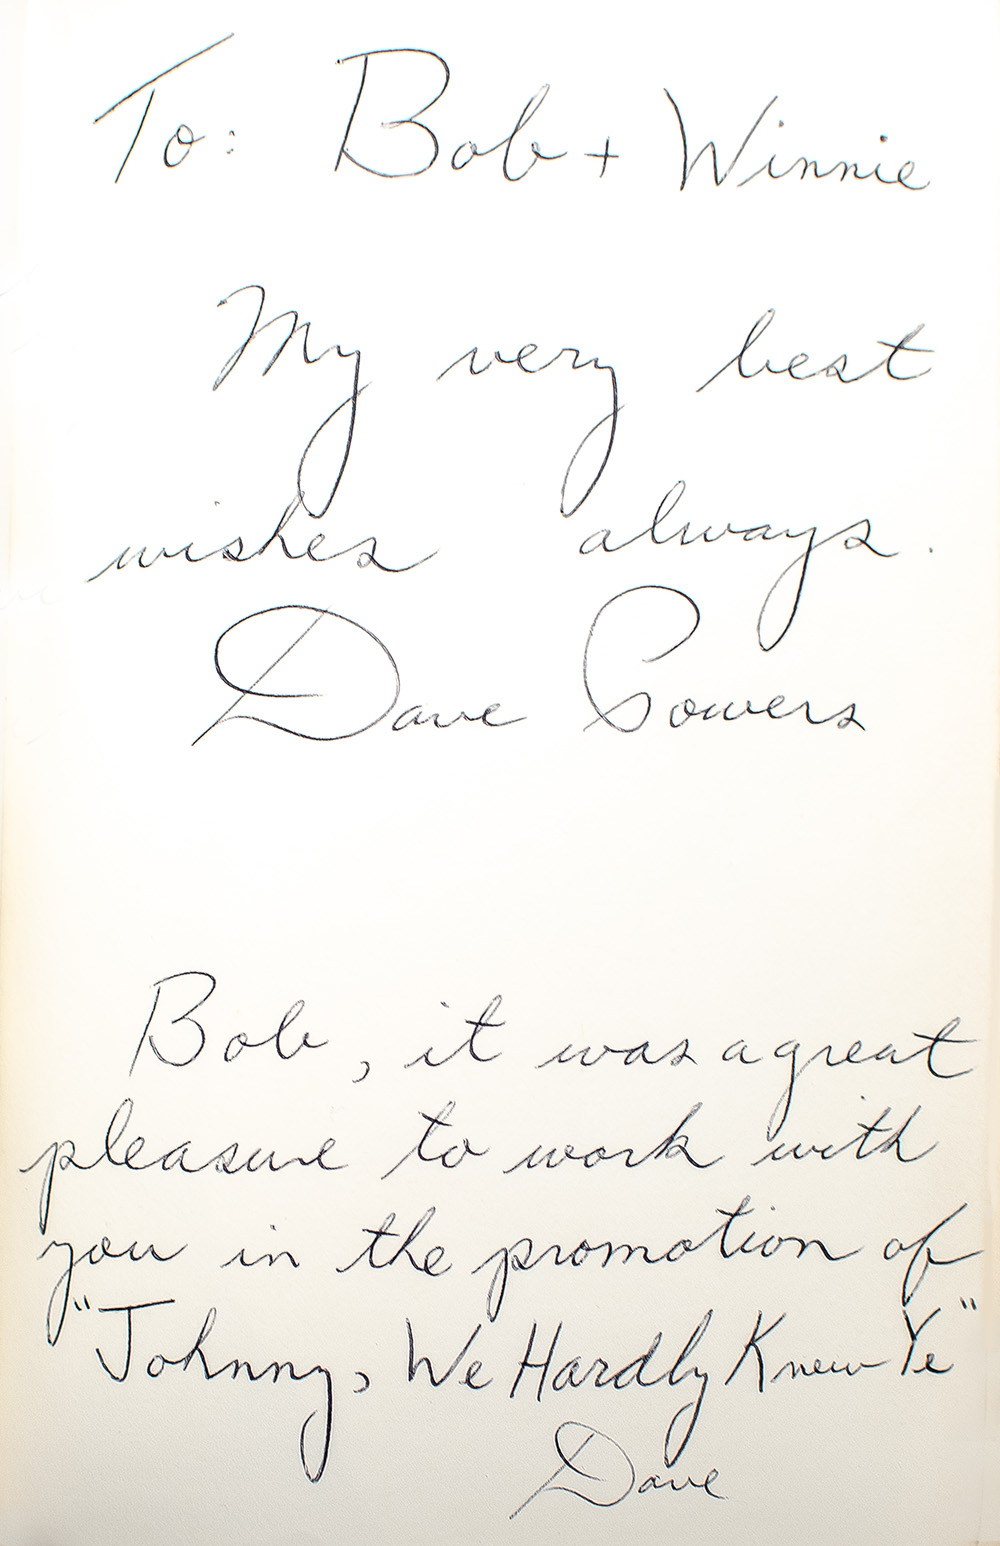 To: Bob + Winnie
My very best
wishes always.
Dave Powers
Bob, it was a great
pleasure to work with
you in the promotion of
"Johnny, We Hardly Knew Ye"
Dave